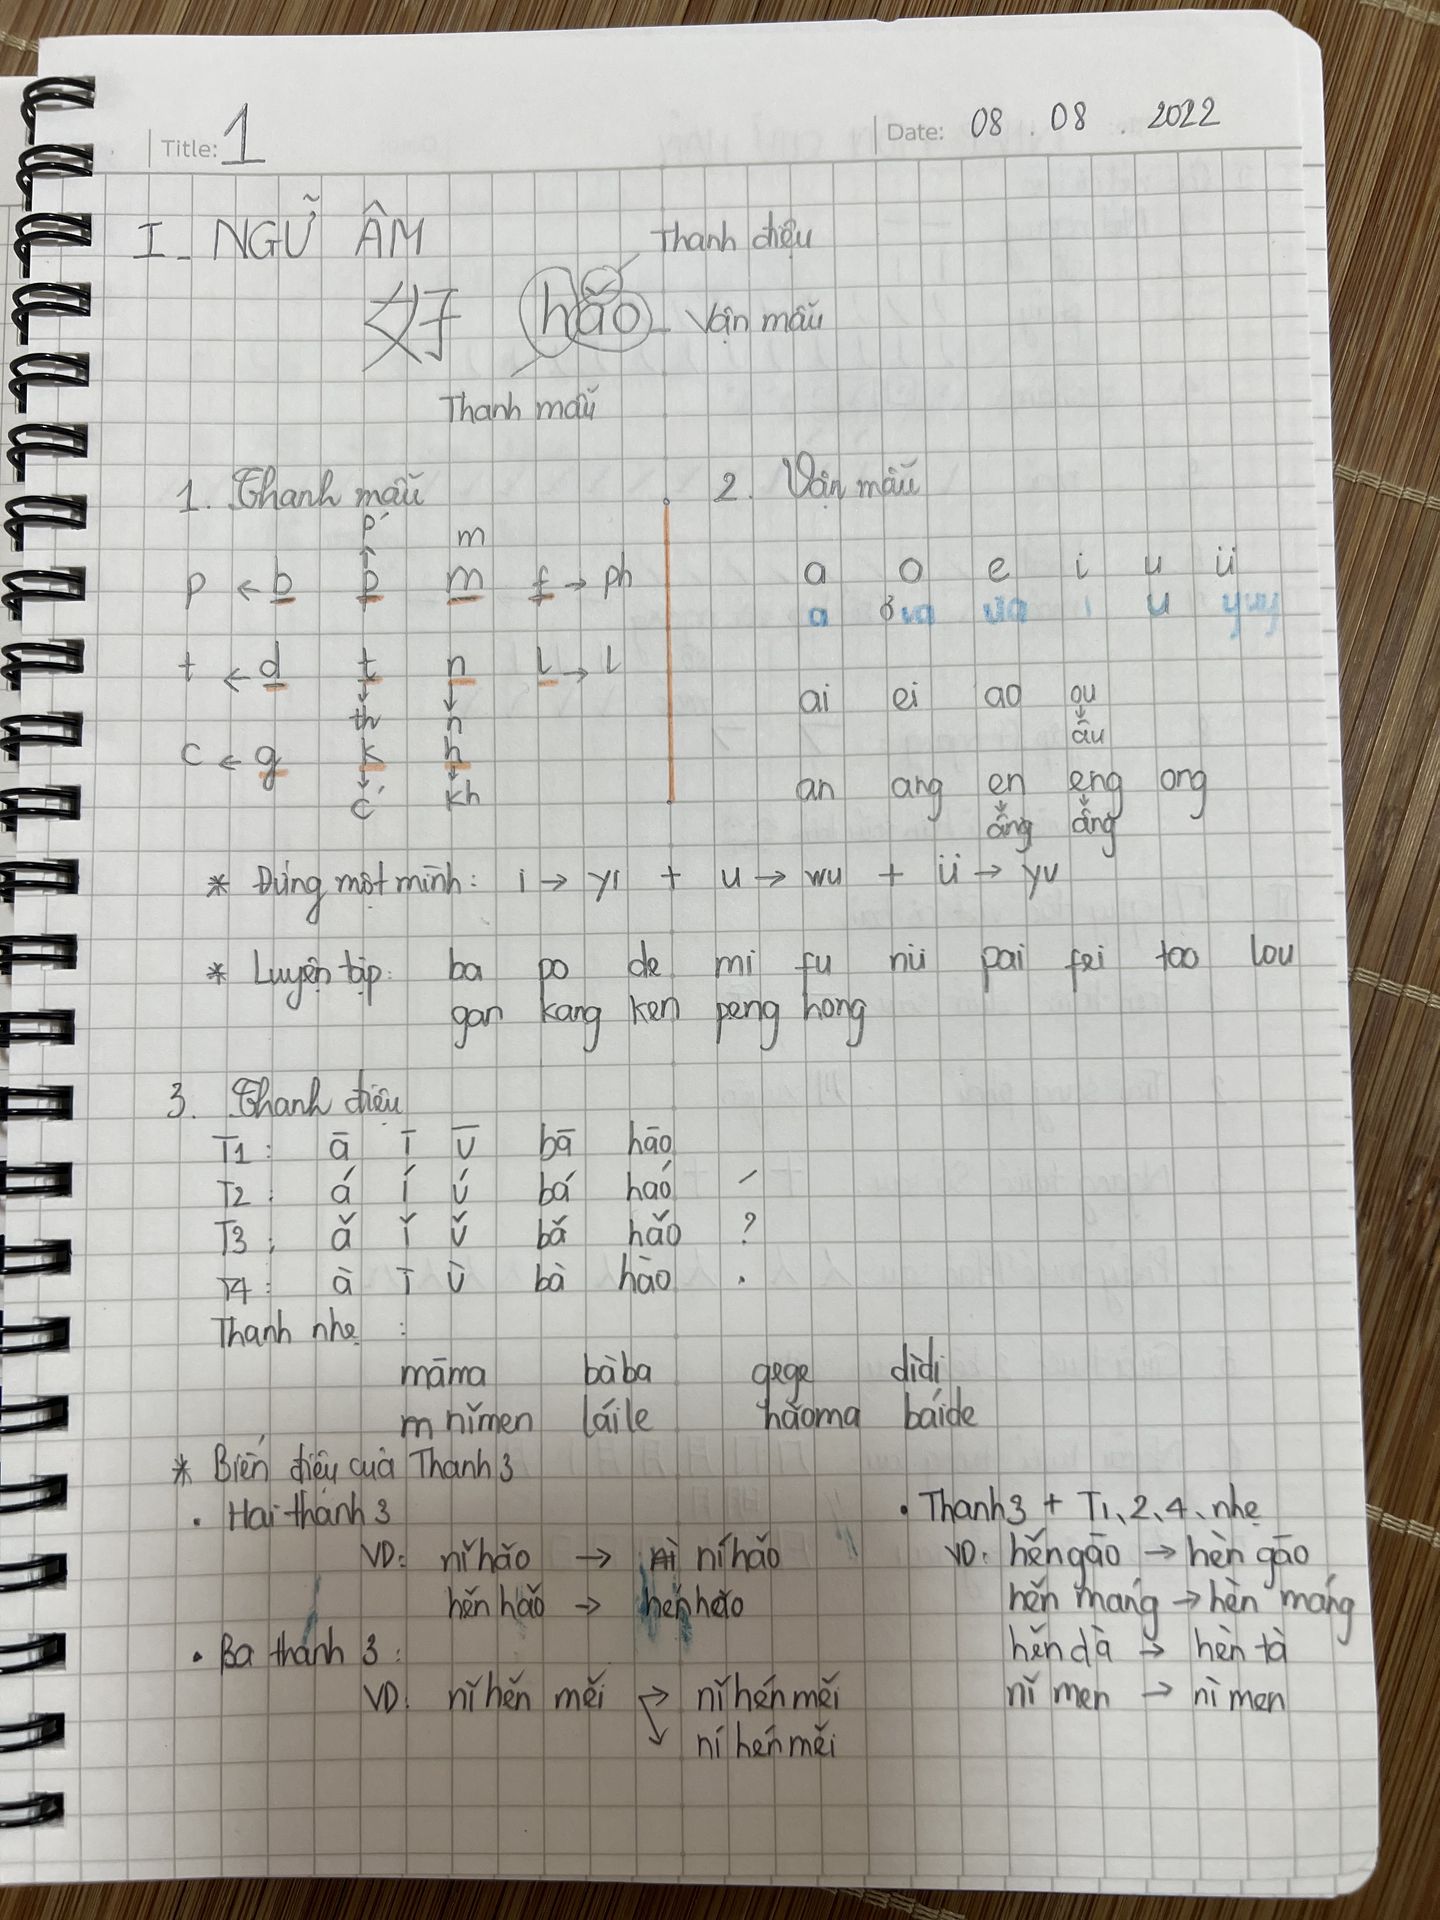 Title: 1
Date: 08 . 08 . 2022
I_ NGỮ ÂM
Thanh điệu
好 hǎo Vận mẫu
Thanh mẫu
1. Thanh mẫu
p' m
p ← b p m f → ph
t ← d t n l → l
th n
c ← g k h
c' kh
2. Vận mẫu
a o e i u ü
a ơ ưa i u yuy
ai ei ao ou
âu
an ang en eng ong
âng
* Đứng một mình: i → yi + u → wu + ü → yu
* Luyện tập: ba po de mi fu nü pai fei tao lou
gan kang ken peng hong
3. Thanh điệu
T1: ā ī ū bā hāo
T2: á í ú bá háo /
T3: ǎ ǐ ǔ bǎ hǎo ?
T4: à ì ù bà hào .
Thanh nhẹ :
māma bàba gege dìdi
m nǐmen láile hǎoma báide
* Biến điệu của Thanh 3
• Hai thanh 3
VD: nǐ hǎo → ní hǎo
hěn hǎo →
• Ba thanh 3:
VD: nǐ hěn měi → nǐ hén měi
↘ ní hén měi
• Thanh 3 + T1, 2, 4, nhẹ
VD: hěn gāo → hèn gāo
hěn máng → hèn máng
hěn dà → hèn tà
nǐ men → nì men